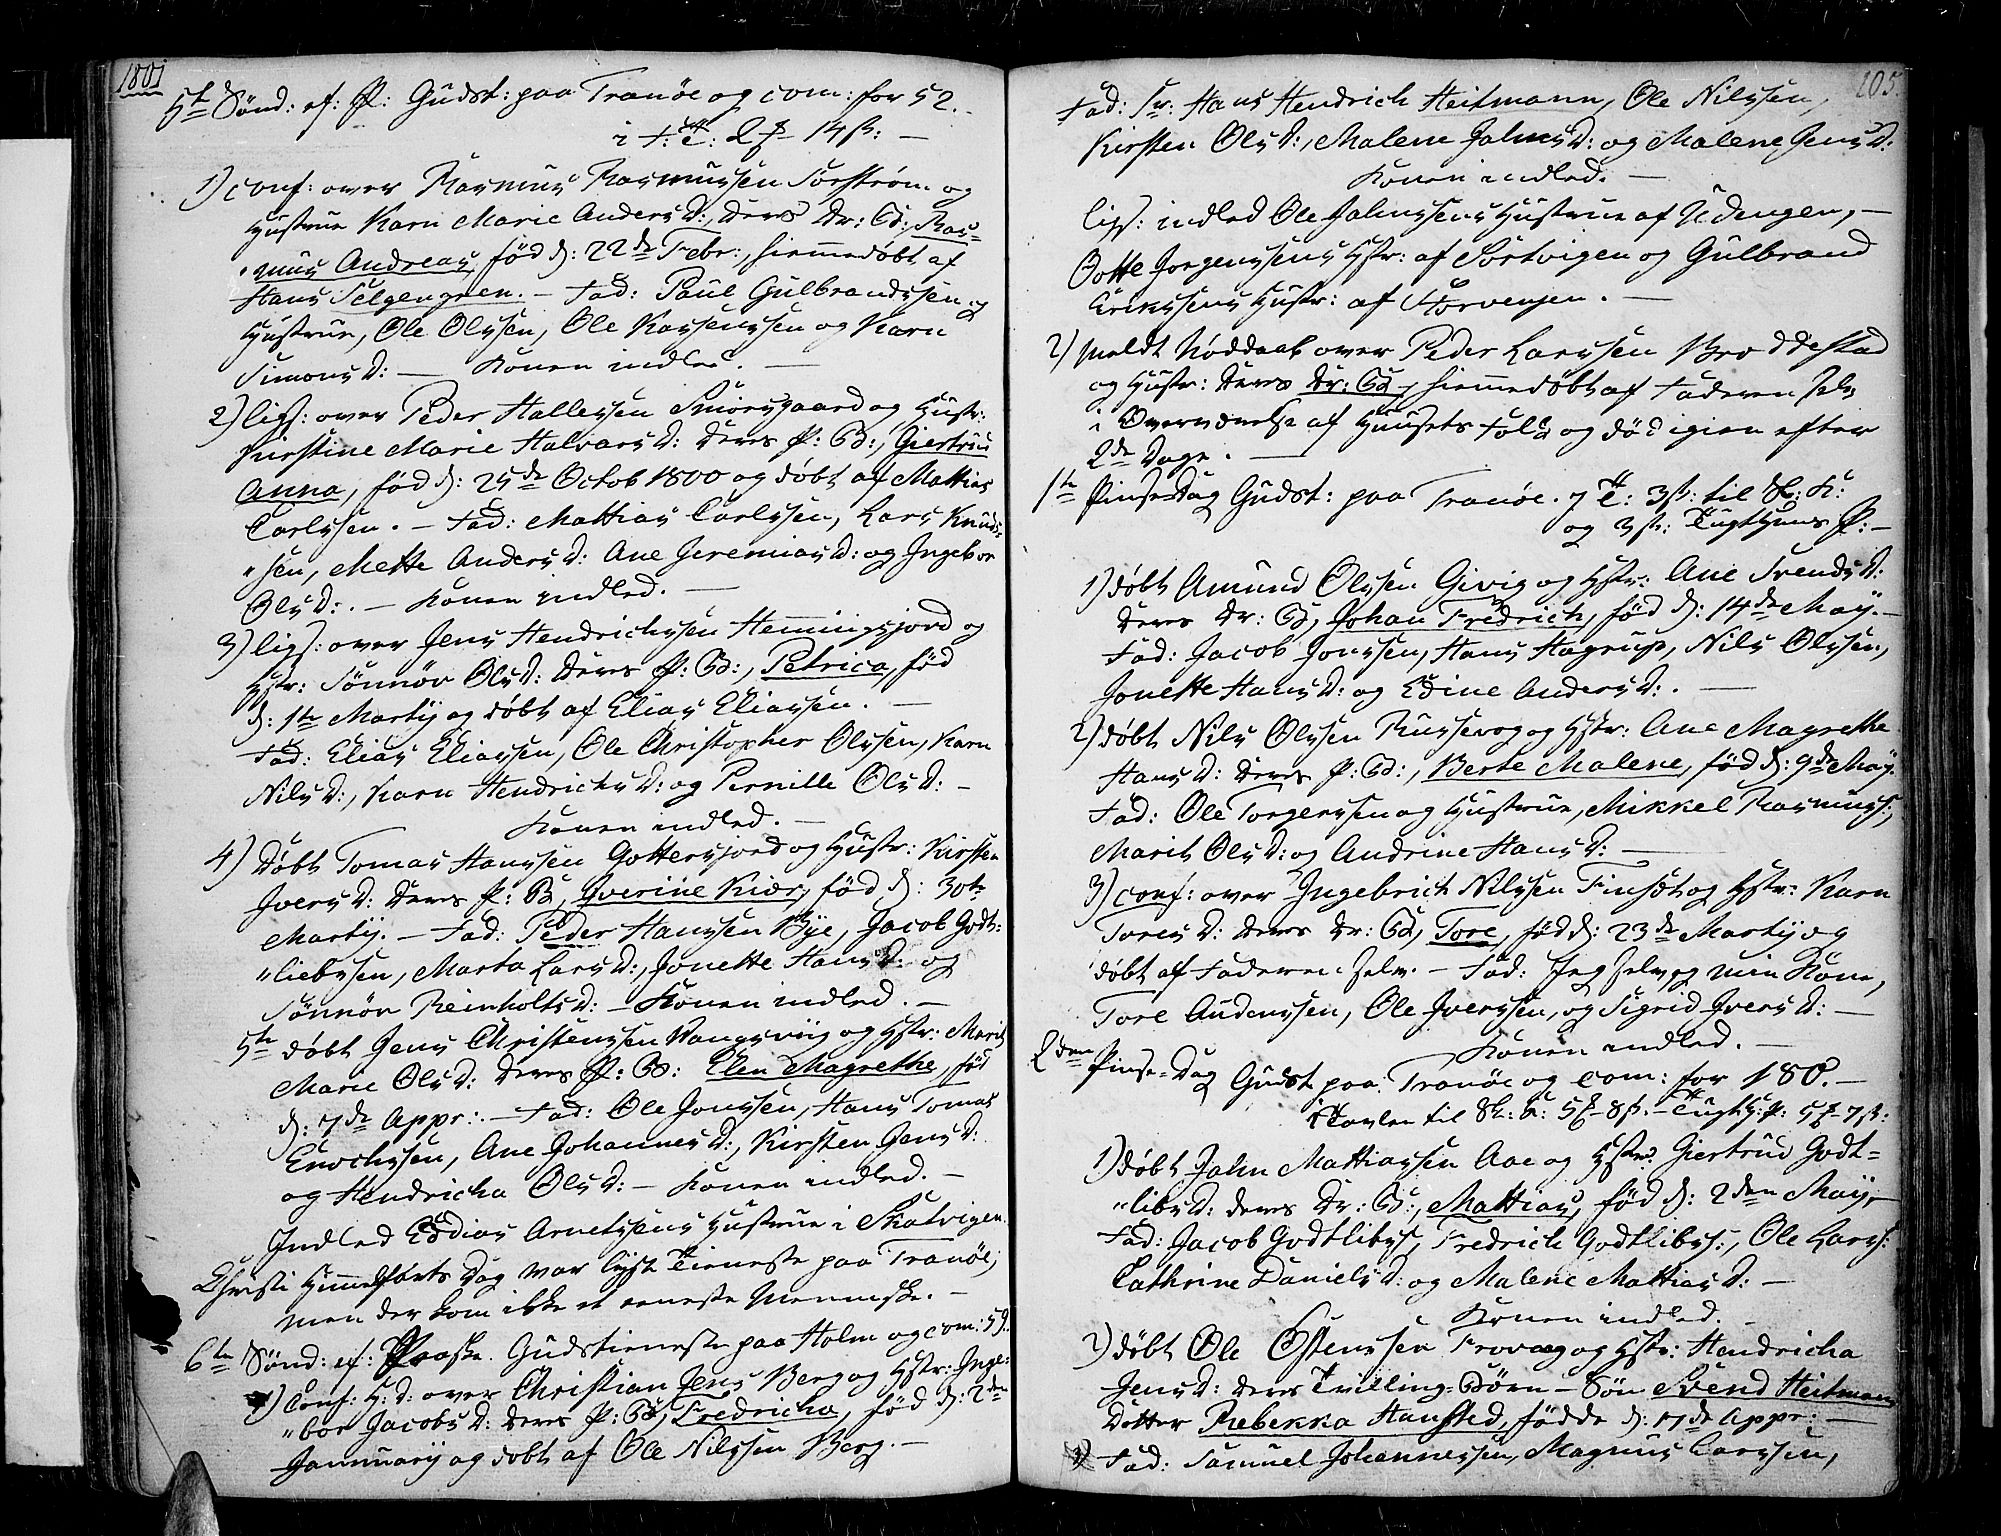 1801
5te Sønd: ef: P: Gudst: paa Tranøe og com: for 52.
i T:
1) conf: over Rasmus Rasmussen Sørstrøm og
Hustrue Karn Marie Anders D:, Deres Dr: B:, Ras-
"mus Andreas, fød d: 22de Febr:, hiemmedøbt af
Hans Selgengreen. — Fad: Paul Gulbrandsen og
Hustrue, Ole Olsen, Ole og Karn
Simons D: — Konen indled. —
2) ligs: over Peder Hallesen Smørsgaard og Hustr:
Kirstine Marie Halvars D: Deres P: B:, Giertru
Anna, fød d: 25de Octob 1800 og døbt af Mattias
Carlsen. — Fad: Mattias Carlsen, Lars Knud-
"sen, Mette Anders D: Ane Jeremias D: og Ingebor
Ols D:. — Konen indled. —
3) ligs: over Jens Hendrichsen Hemmingsjord og
Hstr: Sønnøv Ols D: Deres P: B:, Petrica, fød
d: 1te Martij og døbt af Elias Eliassen. —
Fad: Elias Eliassen, Ole Christopher Olsen, Karn
Nils D:, Karn Hendrichs D: og Pernille Ols D: —
Konen indled. —
4) Døbt Tomas Hansen Gottersjord og Hustr: Kirsten
Ivers D: Deres P: B, Iverine Kiær, fød d: 30te
Martij. — Fad: Peder Hansen Bye, Jacob Godt-
"liebsen, Marta Lars D:, Jonette Hans D: og
Sønnøv Reinholts D: — Konen indled. —
5te døbt Jens Christensen Vangsviig og Hstr: Marit
Marie Ols D: Deres P: B: Elen Magrethe, fød
d: 7de Appr:. — Fad: Ole Jonsen, Hans Tomas
Enochsen, Ane Johannes D:, Kirsten Jens D:
og Hendricha Ols D: — Konen indled. —
Indled Eddias Arnetsens Hustrue i Skatvigen
Christi Himmelfarts Dag var lyst Tieneste paa Tranøe,
men der kom ikke et eeneste Menneske. —
6te Sønd: ef: Paaske. Gudstieneste paa Holm og com: 59.
1) Conf: H: D: over Christian Jens Berg og Hstr: Inge-
"bor Jacobs D: Deres P: B, Fredricha, fød d: 2de
Januarij og døbt af Ole Nilssen Berg. —
205.
Fad: Sr: Hans Hendrich Heitmann, Ole Nilssen,
Kirsten Ols D:, Malene Jahns D: og Malene Jens D:
Konen indled. —
ligs: indled Ole Jahnsens Hustrue af Udengen, —
Botte Jørgensens Hstr: af Sørtvigen og Gulbrand
Eriksens Hustr: af Storvenjen. —
2) meldt Nøddaab over Peder Larssen Broddestad
og Hustr: Deres Dr: B, hiemmedøbt af Faderen selv
i Overværelse af Huusets Folk og død igien efter
2de Dage. —
1te Pinse Dag Gudst: paa Tranøe. 7 3ß: til K:
og 3ß: Tugthuus P: —
1) døbt Amund Olsen Givig og Hstr: Ane Svends D:
Deres Dr: B, Johan Fredrich, fød d: 14de Maÿ. —
Fad: Jacob Jonsen, Hans Hagrup, Nils Olsen,
Jonette Hans D: og Edine Anders D:. —
2) døbt Nils Olsen Russevog og Hstr: Ane Magrethe
Hans D: Deres P: B:, Berte Malene, fød d: 9de Maÿ.
Fad: Ole Torgersen og Hustrue, Mikkel Rasmuss:,
Marit Ols D: og Andrine Hans D: —
3) conf: over Ingebrich Nilssen Finset og Hstr: Karn
Tores D: Deres Dr: B, Tore, fød d: 23de Martij og
døbt af Faderen selv. — Fad: Jeg selv og min Kone,
Tore Andensen, Ole Iversen, og Sigrid Ivers D: —
Konen indled. —
2den Pinse-Dag Gudst paa Tranøe og com: for 180. —
i Tavlen til Sk: K: 8ß. — Tugth: P: 7ß:
1) døbt Jahn Mattiassen Aae og Hstr: Giertrud Godt-
"libs D: Deres Dr: B:, Mattias, fød d: 2den Maij, —
Fad: Jacob Godtlibs, Fredrich Godtlibs:, Ole Lars:
Cathrine Daniels D: og Malene Mattias D: —
Konen indled. —
2) døbt Ole Østensen Frovaag og Hstr: Hendricha
Jens D: Deres Tvilling-Børn — Søn Svend Heitman
Datter Rebekka Hansted, fødde d: 17de Appr: —
Fad: Samuel Johannessen, Magnus Larssen,